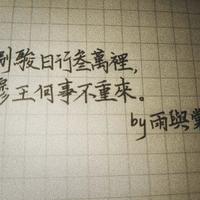 捌骏日行叁萬裡,
穆王何事不重來。
by雨與